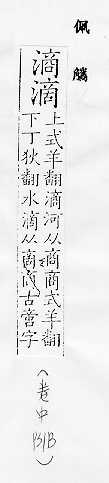 佩觿
滳滴
上式羊翻滳河从商商式羊翻
下丁狄翻水滴从啇啇古啻字
(卷中131B)